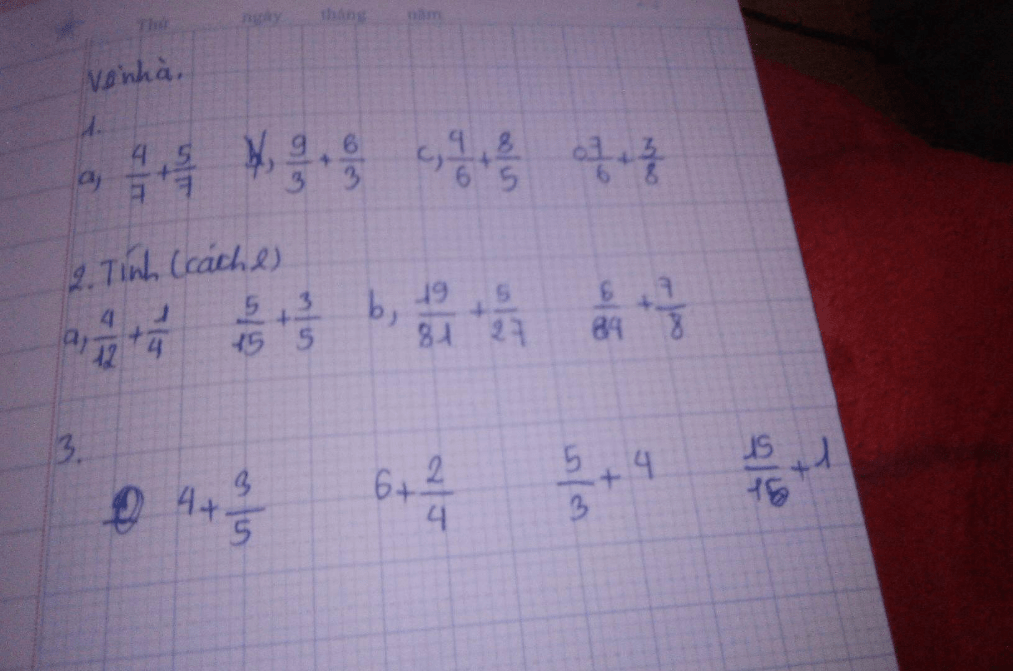 Thứ ngày tháng năm
Về nhà.
1.
a, 4/7 + 5/7 b, 9/3 + 6/3 c, 4/6 + 8/5 7/6 + 3/8
2. Tính (cách 2)
a, 4/12 + 1/4 5/15 + 3/5 b, 19/81 + 5/27 + 7/8
3.
4 + 3/5 6 + 2/4 5/3 + 4 + 1